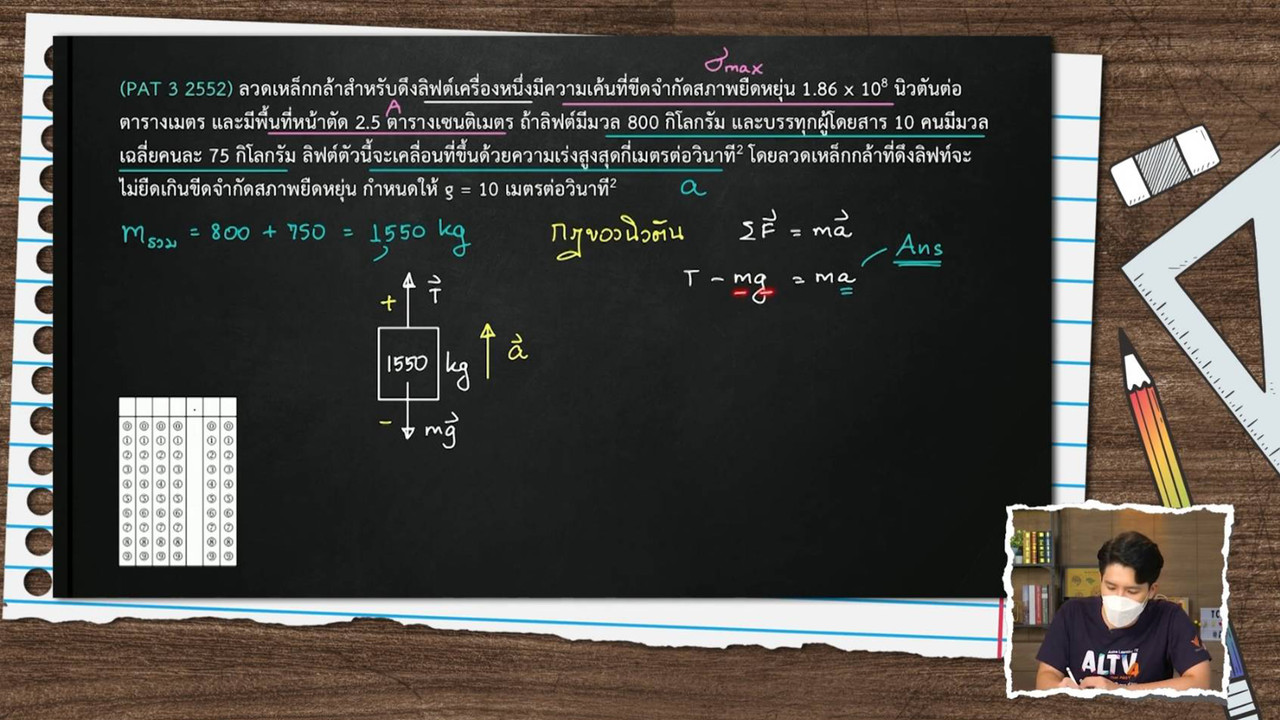 σmax
(PAT 3 2552) ลวดเหล็กกล้าสำหรับดึงลิฟต์เครื่องหนึ่งมีความเค้นที่ขีดจำกัดสภาพยืดหยุ่น 1.86 x 10⁸ นิวตันต่อ
A
ตารางเมตร และมีพื้นที่หน้าตัด 2.5 ตารางเซนติเมตร ถ้าลิฟต์มีมวล 800 กิโลกรัม และบรรทุกผู้โดยสาร 10 คนมีมวล
เฉลี่ยคนละ 75 กิโลกรัม ลิฟต์ตัวนี้จะเคลื่อนที่ขึ้นด้วยความเร่งสูงสุดกี่เมตรต่อวินาที² โดยลวดเหล็กกล้าที่ดึงลิฟท์จะ
ไม่ยืดเกินขีดจำกัดสภาพยืดหยุ่น กำหนดให้ g = 10 เมตรต่อวินาที²
a
mรวม = 800 + 750 = 1,550 kg
กฎของนิวตัน ΣF⃗ = ma⃗
Ans
T - mg = ma
+ T⃗
1550 kg
a⃗
- mg⃗
⓪ ⓪ ⓪ ⓪ ⓪ ⓪
① ① ① ① ① ①
② ② ② ② ② ②
③ ③ ③ ③ ③ ③
④ ④ ④ ④ ④ ④
⑤ ⑤ ⑤ ⑤ ⑤ ⑤
⑥ ⑥ ⑥ ⑥ ⑥ ⑥
⑦ ⑦ ⑦ ⑦ ⑦ ⑦
⑧ ⑧ ⑧ ⑧ ⑧ ⑧
⑨ ⑨ ⑨ ⑨ ⑨ ⑨
ALTV
4